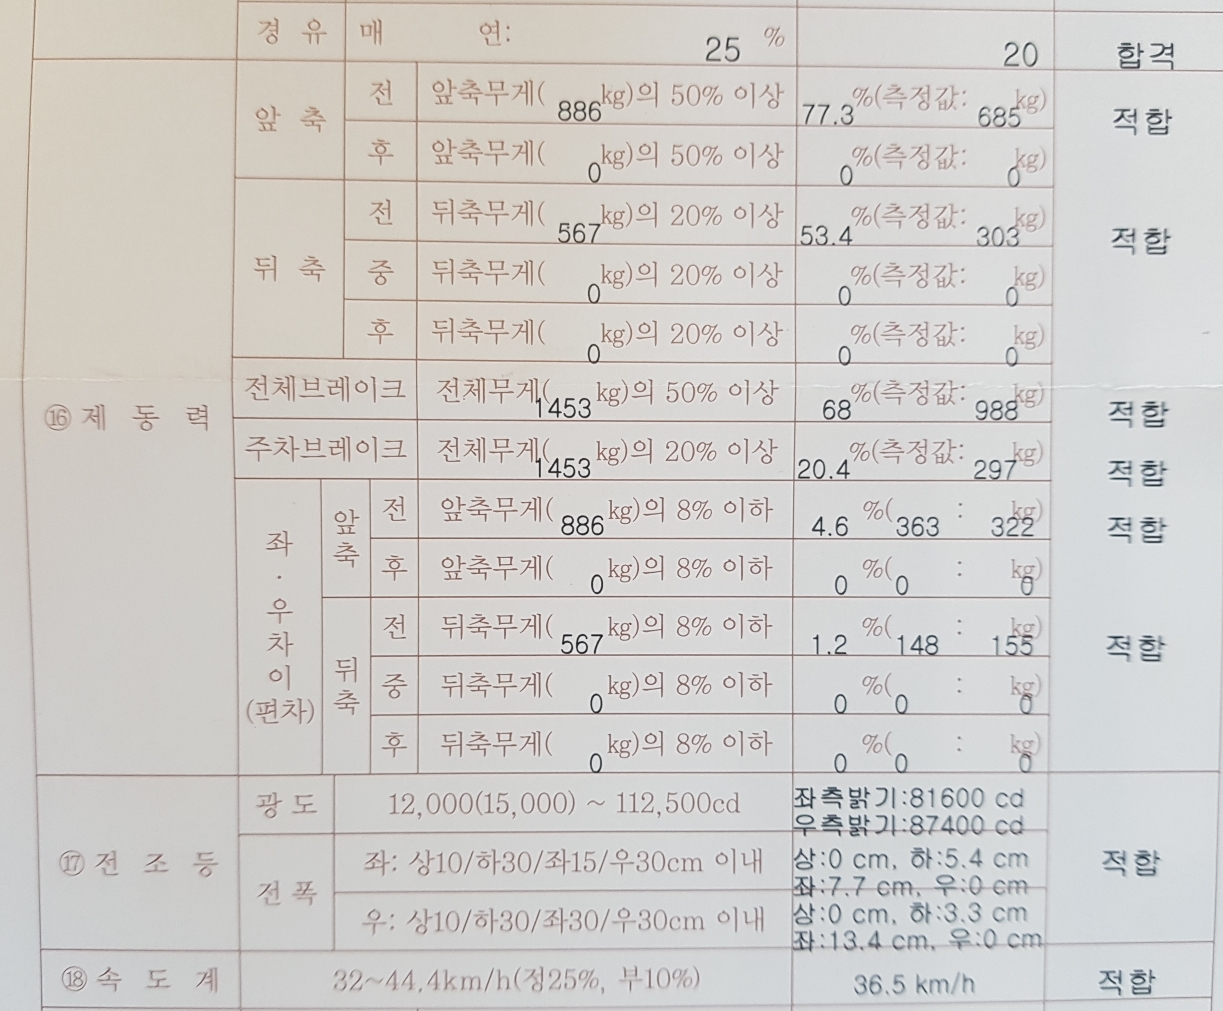 경 유 매 연: 25 % 20 합격
⑯ 제 동 력
앞 축 전 앞축무게( 886 kg)의 50% 이상 77.3 %(측정값: 685 kg) 적합
후 앞축무게( 0 kg)의 50% 이상 0 %(측정값: 0 kg)
뒤 축 전 뒤축무게( 567 kg)의 20% 이상 53.4 %(측정값: 303 kg) 적합
중 뒤축무게( 0 kg)의 20% 이상 0 %(측정값: 0 kg)
후 뒤축무게( 0 kg)의 20% 이상 0 %(측정값: 0 kg)
전체브레이크 전체무게( 1453 kg)의 50% 이상 68 %(측정값: 988 kg) 적합
주차브레이크 전체무게( 1453 kg)의 20% 이상 20.4 %(측정값: 297 kg) 적합
좌·우차이(편차) 앞축 전 앞축무게( 886 kg)의 8% 이하 4.6 %( 363 : 322 kg) 적합
후 앞축무게( 0 kg)의 8% 이하 0 %( 0 : 0 kg)
뒤축 전 뒤축무게( 567 kg)의 8% 이하 1.2 %( 148 : 155 kg) 적합
중 뒤축무게( 0 kg)의 8% 이하 0 %( 0 : 0 kg)
후 뒤축무게( 0 kg)의 8% 이하 0 %( 0 : 0 kg)
⑰ 전 조 등 광 도 12,000(15,000) ~ 112,500cd 좌측밝기:81600 cd
우측밝기:87400 cd
전 폭 좌: 상10/하30/좌15/우30cm 이내 상:0 cm, 하:5.4 cm 적합
좌:7.7 cm, 우:0 cm
우: 상10/하30/좌30/우30cm 이내 상:0 cm, 하:3.3 cm
좌:13.4 cm, 우:0 cm
⑱ 속 도 계 32~44.4km/h(정25%, 부10%) 36.5 km/h 적합